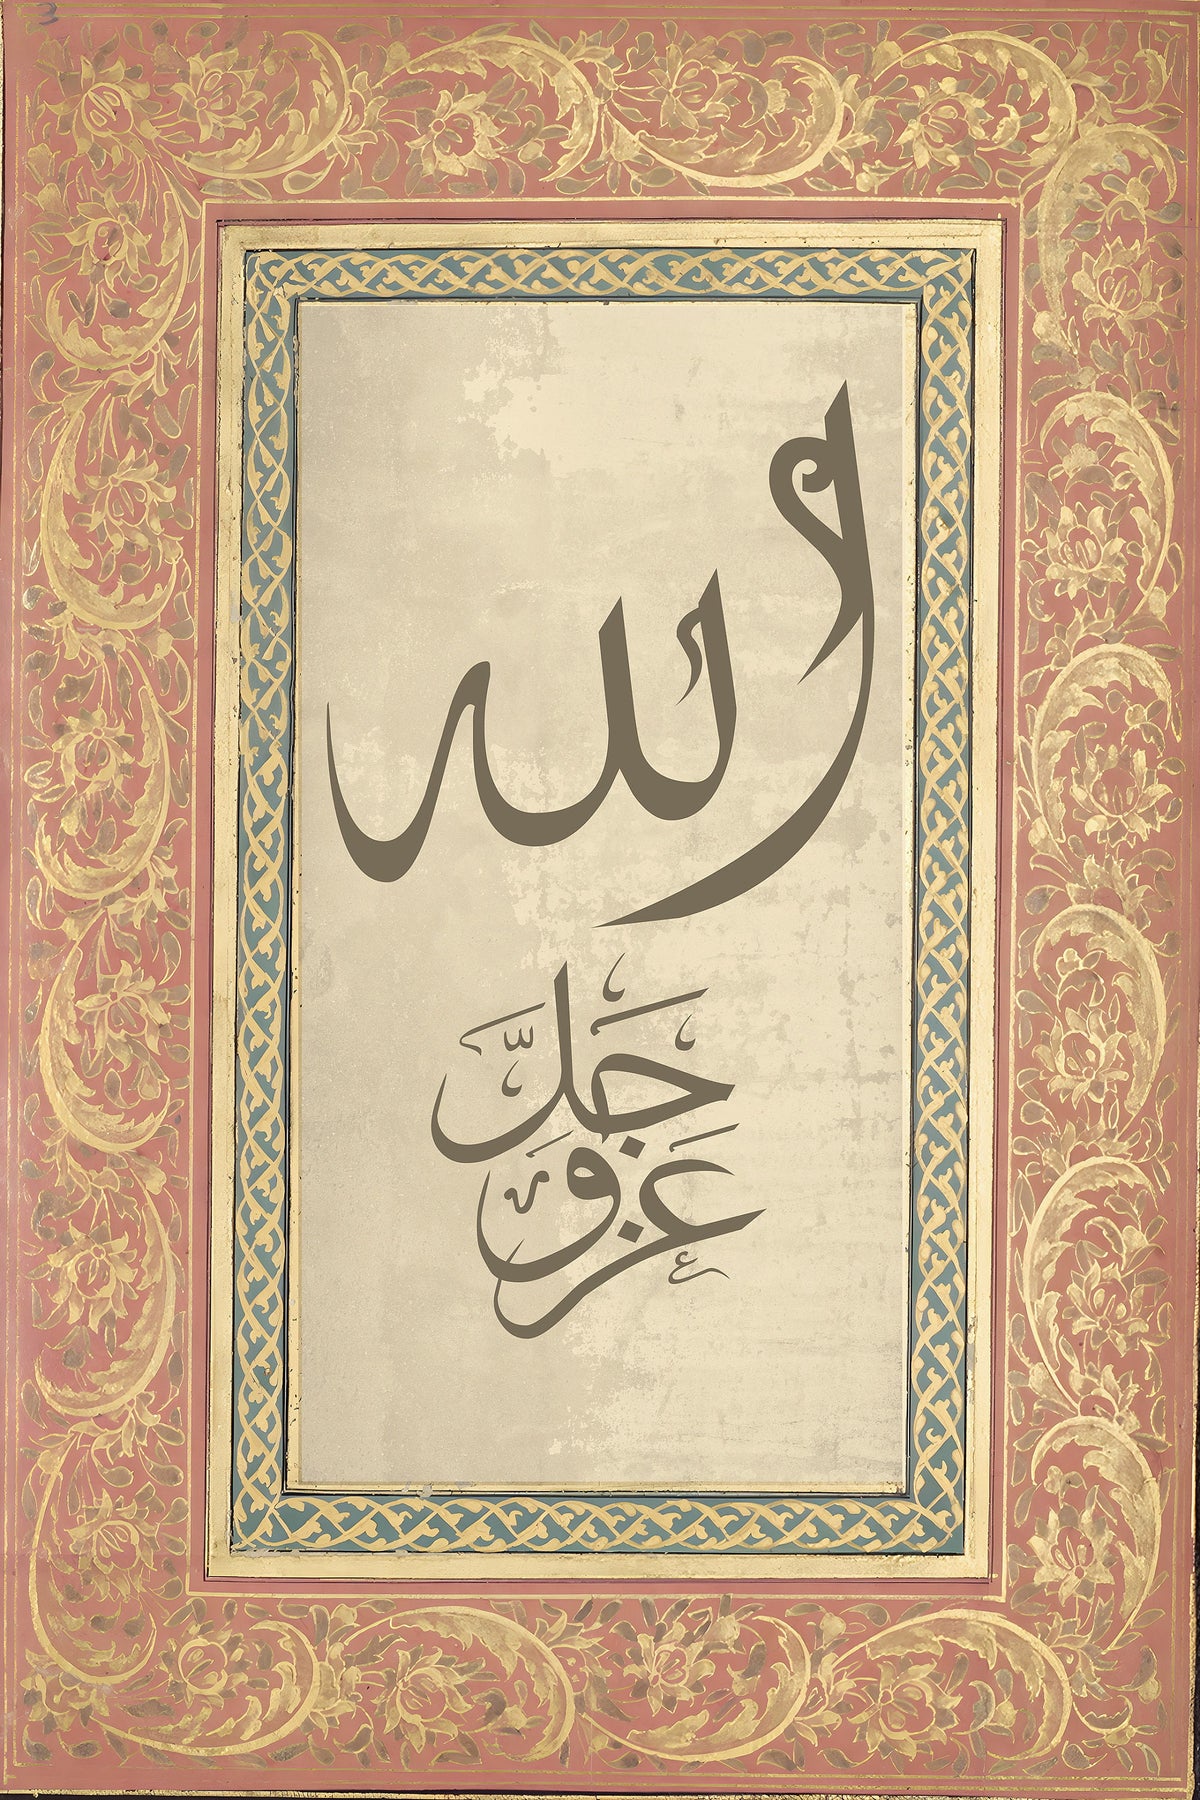 الله
عز وجلّ